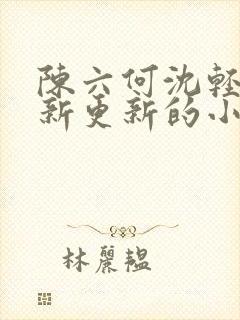 陳六何沈輕
新更新的小
林麗韞